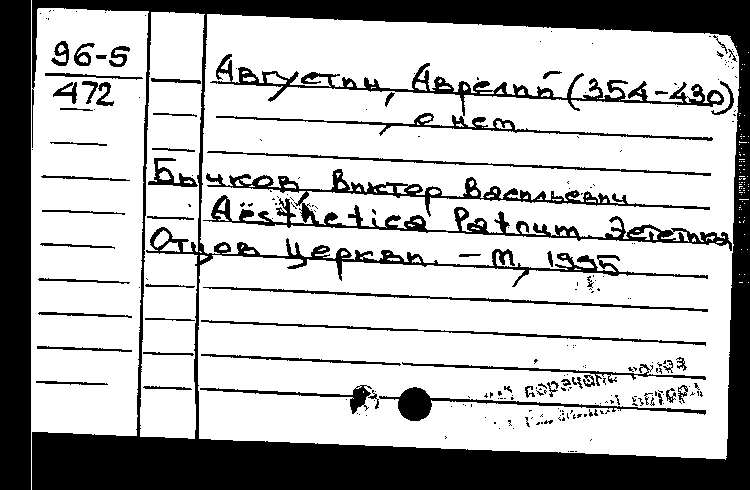 96-5
472
Августин, Аврелий (354-430)
, о нем
Бычков, Виктор Васильевич
Aesthetica Patrum. Эстетика
Отцов Церкви. - М., 1995